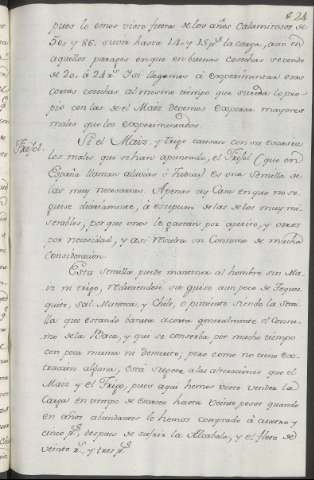 24
pues lo emos visto fuera de los años Calamitosos de
50, y 86. suvir hasta 14, y 15 p.s la carga, aun en
aquellos parages en que en buenas cosechas se vende
de 20, á 24 r.s Si llegamos á experimentar esas
cortas cosechas al mismo tiempo que suceda lo pro-
pio con las de el Maiz devemos esperar mayores
males que los experimentados.
Frijol.
Si el Maiz, y trigo causan con su escasés
los males que se han apuntado, el Frijol (que en
España llaman aluvias ó habas) es una Semilla de
las muy necesarias. Apenas ay Casa en que no se
guise diariamente, á excepcion de las de los muy mi-
serables, porque unos lo gastan por apetito, y otros
por necesidad, y asi resulta un Consumo de mucha
consideracion.
Esta semilla puede mantener al hombre sin Ma-
iz ni trigo, reduciendose su guiso a un poco de Teques-
quite, sal, Manteca, y Chile, ó pimiento siendo la Semi-
lla que estando barata acorta generalmente el Consu-
mo de la Baca, y que se conserba por mucho tiempo
con poca merma ni demerito, pero como no tiene Ex-
traccion alguna, está sugeta a las alteraciones que el
Maiz y el Trigo, pues aqui hemos visto vender la
Carga en tiempo de escasés hasta Veinte pesos quando
en años abundantes lo hemos comprado á quatro y
cinco p.s, despues de satisfha la Alcabala, y el flete de
veinte r.s, y tres p.s